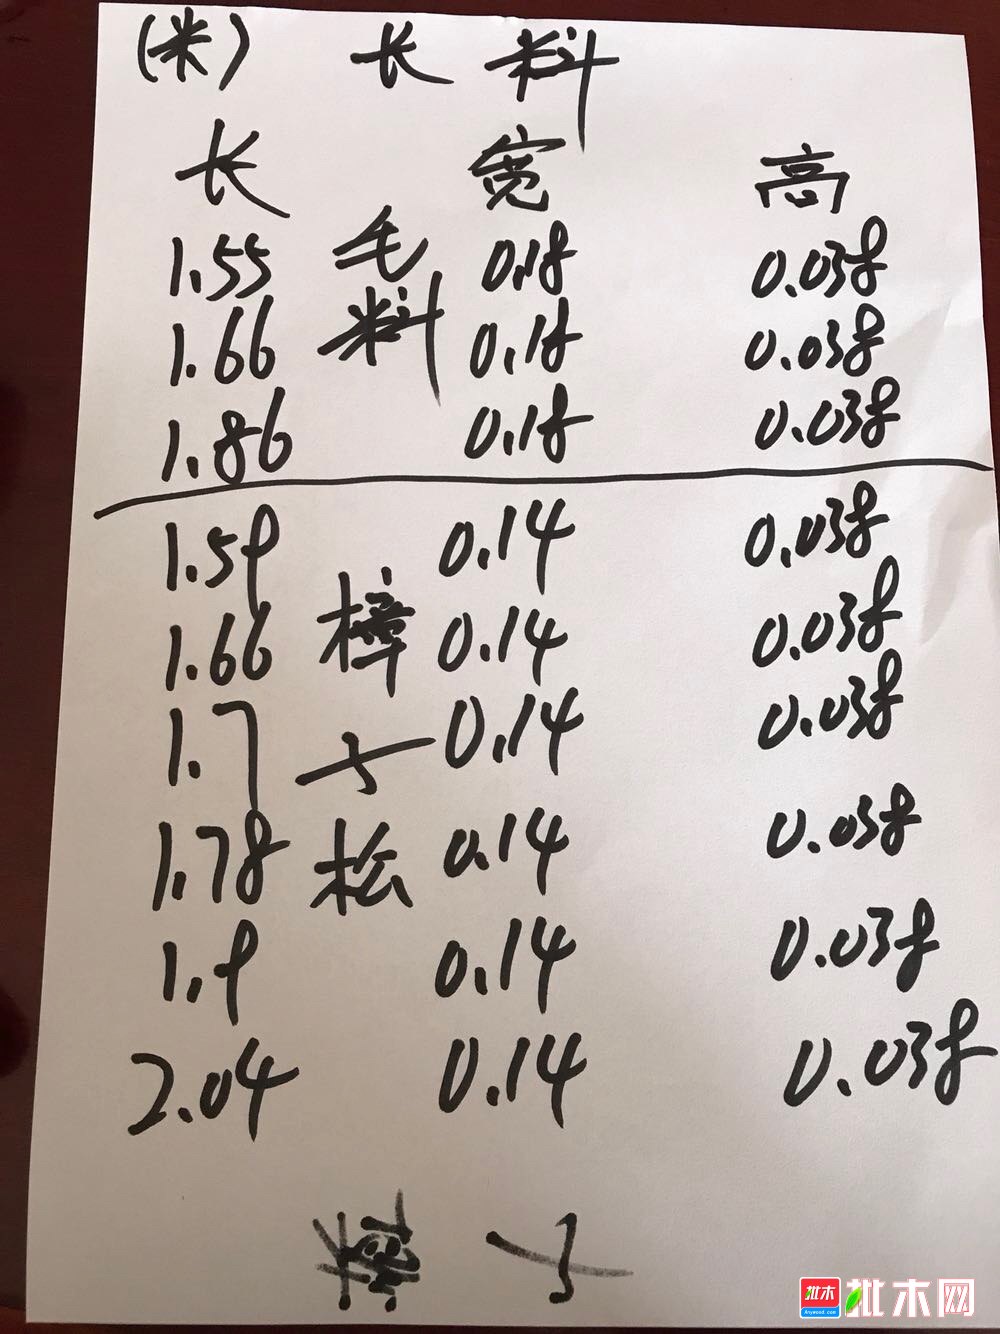 (米) 长料
长 宽 高
1.55 毛 0.18 0.038
1.66 料 0.18 0.038
1.86 0.18 0.038
1.59 0.14 0.038
1.66 樟 0.14 0.038
1.7 子 0.14 0.038
1.78 松 0.14 0.038
1.9 0.14 0.038
2.04 0.14 0.038
批木 Anywood.com 批木网